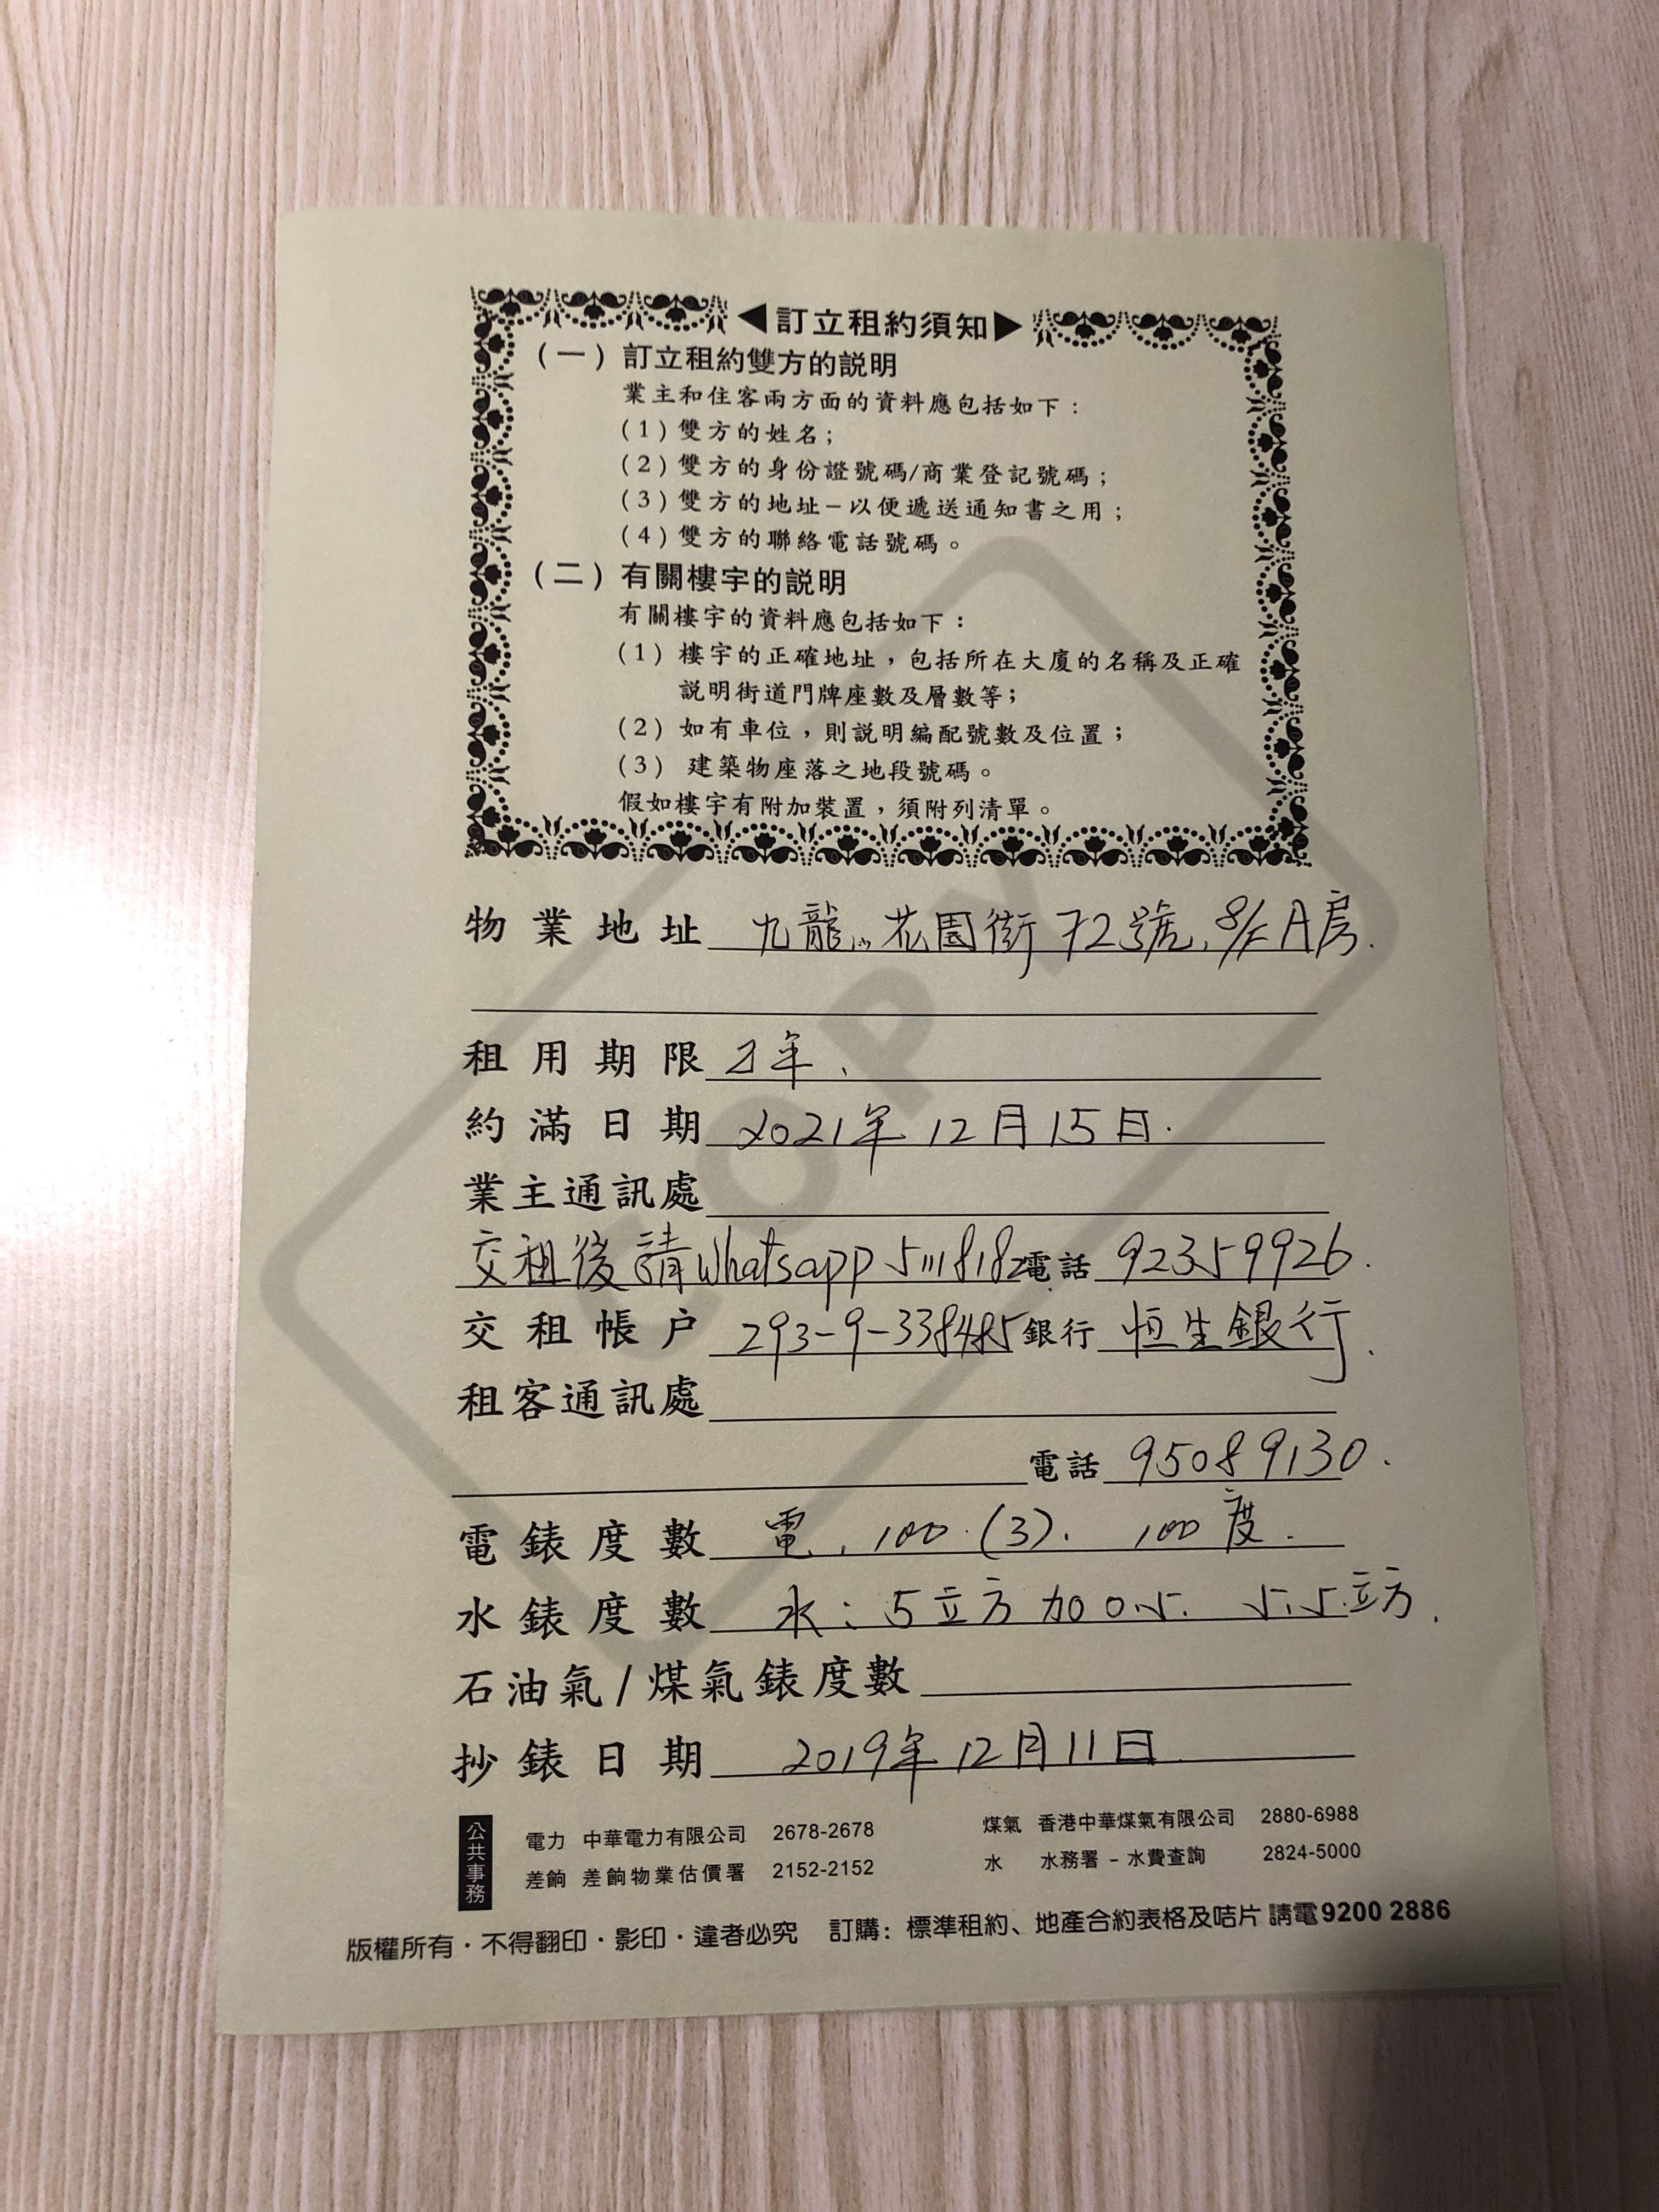 ◀訂立租約須知▶
(一)訂立租約雙方的説明
業主和住客兩方面的資料應包括如下:
(1)雙方的姓名;
(2)雙方的身份證號碼/商業登記號碼;
(3)雙方的地址–以便遞送通知書之用;
(4)雙方的聯絡電話號碼。
(二)有關樓宇的説明
有關樓宇的資料應包括如下:
(1)樓宇的正確地址,包括所在大廈的名稱及正確
説明街道門牌座數及層數等;
(2)如有車位,則説明編配號數及位置;
(3) 建築物座落之地段號碼。
假如樓宇有附加裝置,須附列清單。
COPY
物業地址 九龍 花園街72號, 8/F A房.
租用期限 2年.
約滿日期 2021年12月15日.
業主通訊處
交租後請Whatsapp 電話 92359926.
交租帳户 293-9-338485 銀行 恒生銀行.
租客通訊處
電話 95089130.
電錶度數 電. 100.(3). 100度.
水錶度數 水: 5立方加0.5. 5.5.立方.
石油氣/煤氣錶度數
抄錶日期 2019年12月11日.
公共事務
電力 中華電力有限公司 2678-2678 煤氣 香港中華煤氣有限公司 2880-6988
差餉 差餉物業估價署 2152-2152 水 水務署 – 水費查詢 2824-5000
版權所有·不得翻印·影印·違者必究 訂購: 標準租約、地產合約表格及咭片 請電9200 2886